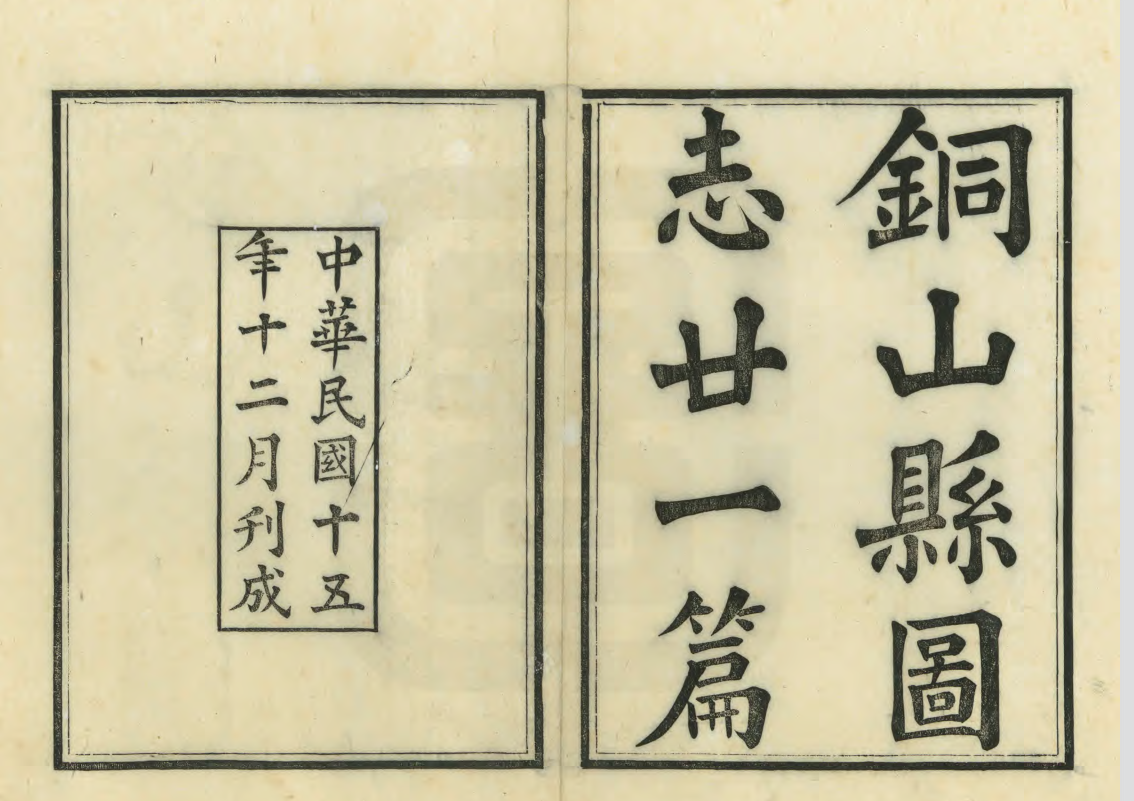 銅山縣圖
志廿一篇
中華民國十五
年十二月刊成